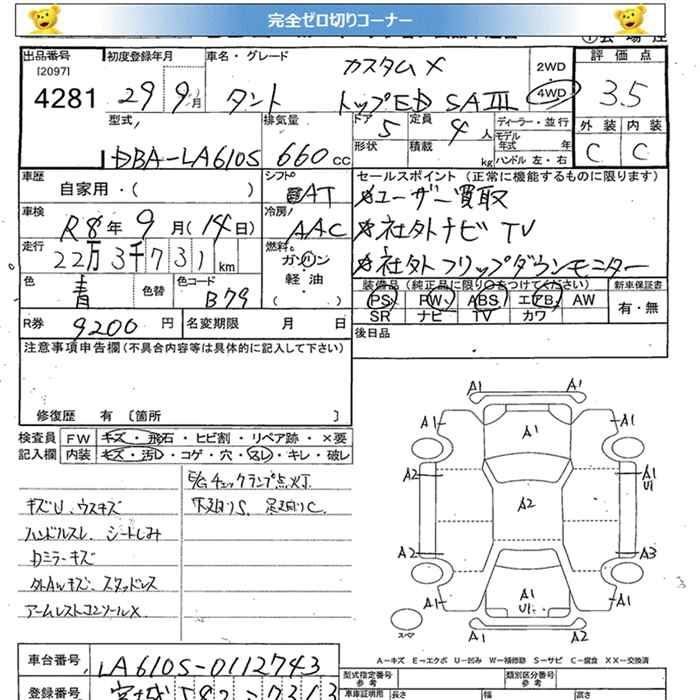 完全ゼロ切りコーナー
出品番号 初度登録年月 車名・グレード カスタムX 2WD 評価点
[2097]
4281 29年9月 タント トップED SAⅢ 4WD 3.5
型式 排気量 ドア 定員 ディーラー・並行 外装 内装
DBA-LA610S 660cc 5 4人 モデル年式 年 C C
形状 積載 kg ハンドル 左・右
車歴 シフト セールスポイント (正常に機能するものに限ります)
自家用・( ) AT ☆ユーザー買取
車検 R8年9月(14日) 冷房 AAC ☆社外ナビ TV
走行 22万3千731km 燃料 ガソリン ☆社外フリップダウンモニター
軽油
( )
色 青 色替 色コード B79 装備品 (純正品に限り○をつけてください) 新車保証書
PS PW ABS エアB AW 有・無
SR ナビ TV カワ
R券 9200円 名変期限 月 日 後日品
注意事項申告欄(不具合内容等は具体的に記入して下さい)
修復歴 有 〔箇所 〕
検査員 FW キズ・飛石・ヒビ割・リペア跡・×要
記入欄 内装 キズ・汚レ・コゲ・穴・スレ・キレ・破レ
E/Gチェックランプ点灯
キズU、ウスキズ 下廻りS、足廻りC
ハンドルスレ、シートしみ
Dミラーキズ
外AWキズ、スタッドレス
アームレストコンソールX
A1 A1
A1 A1 A1
A2 A1
U1
A2
A2 A3
A1 A1 A1
U1
A1 A2
スペア
A-キズ E-エクボ U-凹み W-補修跡 S-サビ C-腐食 XX-交換済
車台番号 LA610S-0112743 型式指定番号 参考 類別区分番号 参考
登録番号 宮城582 車庫証明用 長さ 幅 高さ